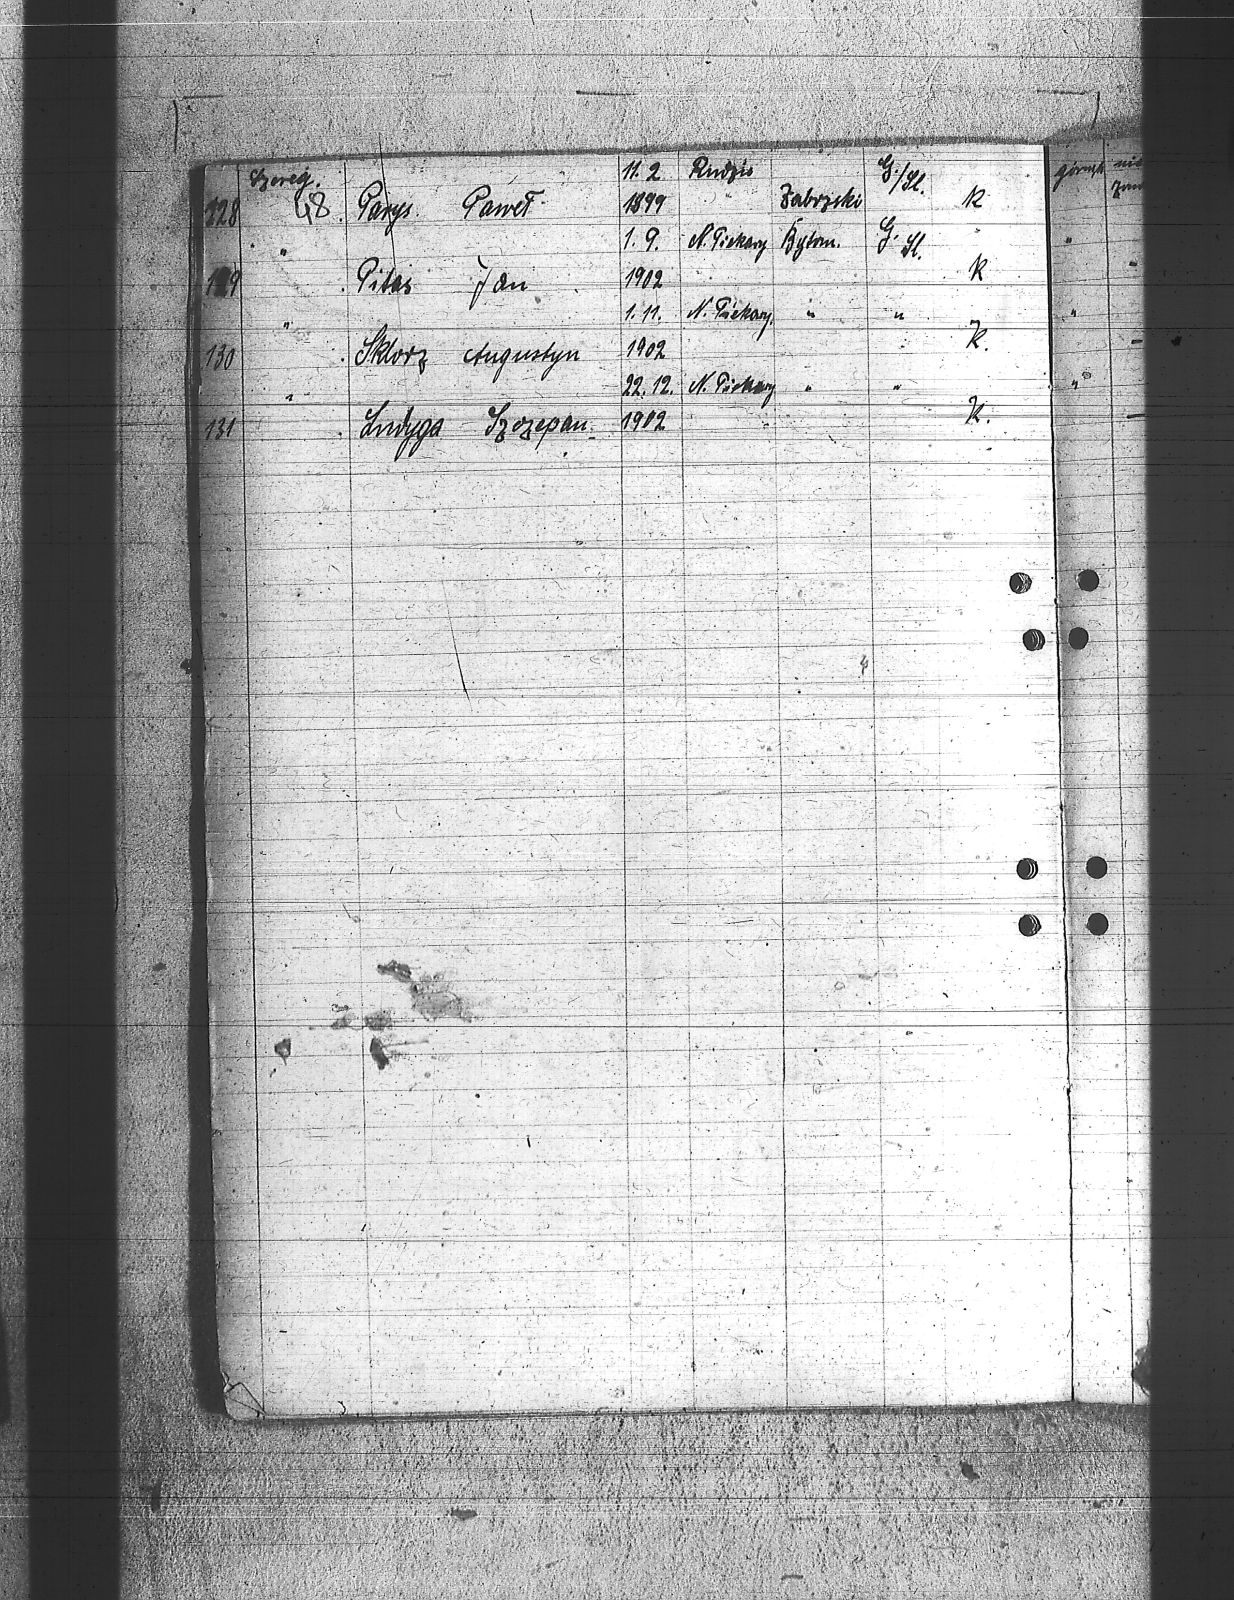 Szereg. 11.2 Rudzie G./Sl. górnik
128 48. Parys. Paweł 1899 Zabrzski K
" 1.9. N. Piekary Bytom. G. Sl. "
129 Pitas Jan 1902 K
" 1.11. N. Piekary. " " "
130 Sklorz Augustyn 1902 K.
" 22.12. N. Piekary " " "
131 Ludyga Szczepan 1902 K.